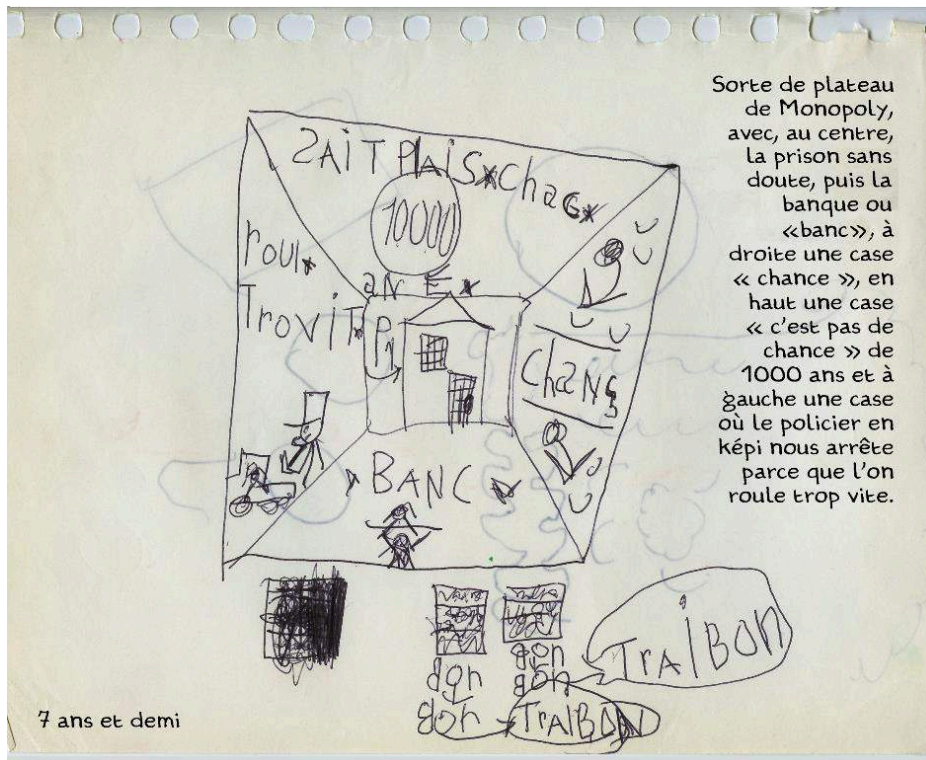 Sorte de plateau
de Monopoly,
avec, au centre,
la prison sans
doute, puis la
banque ou
«banc», à
droite une case
« chance », en
haut une case
« c'est pas de
chance » de
1000 ans et à
gauche une case
où le policier en
képi nous arrête
parce que l'on
roule trop vite.
2AiT PAiS chac
10000
aNE
roul
TroviT
Pri
chans
BANC
bon
bon
TrAlBON
TrAlBON
7 ans et demi